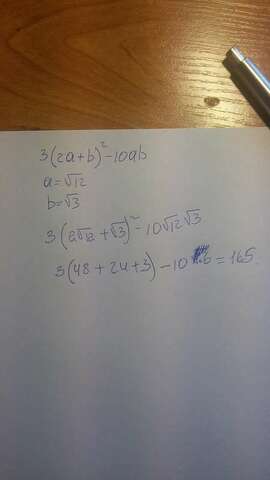 3(2a+b)²-10ab
a=√12
b=√3
3(2√12+√3)²-10√12√3
3(48+24+3)-10·6=165